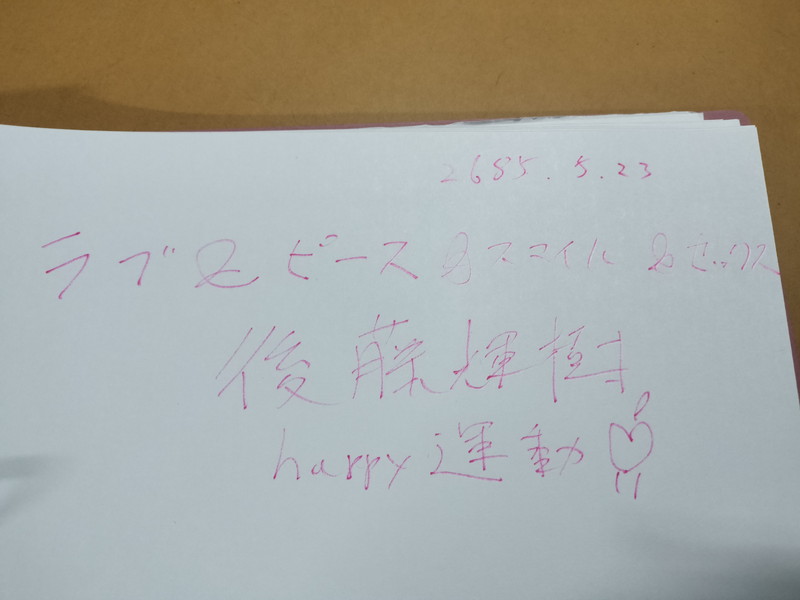 2685.5.23
ラブ&ピース&スマイル&セックス
後藤輝樹
happy運動